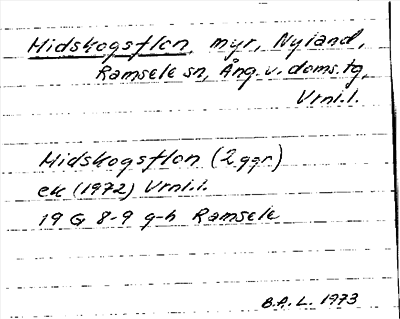 Hidskogsflon, myr, Nyland,
Ramsele sn, Ång. v. doms. tg,
Vrni.l.
Hidskogsflon (2 ggr.)
ek (1972) Vrni.l.
19 G 8-9 g-h Ramsele
B.A.L. 1973